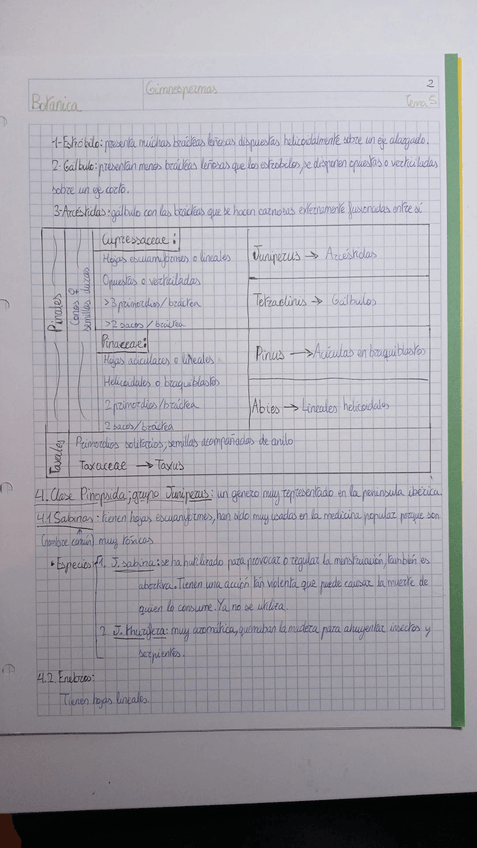 Gimnospermas
2
Botánica
Tema 5
1-Estróbilo: presenta muchas brácteas leñosas dispuestas helicoidalmente sobre un eje alargado.
2-Gálbulo: presentan menos brácteas leñosas que los estróbilos, se disponen opuestas o verticiladas
sobre un eje corto.
3-Arcéstidas: gálbulo con las brácteas que se hacen carnosas externamente fusionadas entre sí
Pinales
Conos ♀
semillas duras
Cupressaceae:
Hojas escuamiformes o lineales
Opuestas o verticiladas
>3 primordios/bráctea
>2 sacos/bráctea
Juniperus → Arcéstidas
Tetraclinus → Gálbulos
Pinaceae:
Hojas aciculares o lineales
Helicoidales o braquiblastos
2 primordios/bráctea
2 sacos/bráctea
Pinus → Acículas en braquiblastos
Abies → Lineales helicoidales
Taxales
Primordios solitarios; semillas acompañadas de arilo
Taxaceae → Taxus
4. Clase Pinopsida; grupo Juniperus: un género muy representado en la península ibérica
4.1 Sabinas: tienen hojas escuamiformes, han sido muy usadas en la medicina popular porque son
(nombre común) muy tóxicas
• Especies
1. J. sabina: se ha utilizado para provocar o regular la menstruación, también es
abortiva. Tienen una acción tan violenta que puede causar la muerte de
quien lo consume. Ya no se utiliza.
2. J. thurifera: muy aromática, quemaban la madera para ahuyentar insectos y
serpientes.
4.2. Enebros:
Tienen hojas lineales